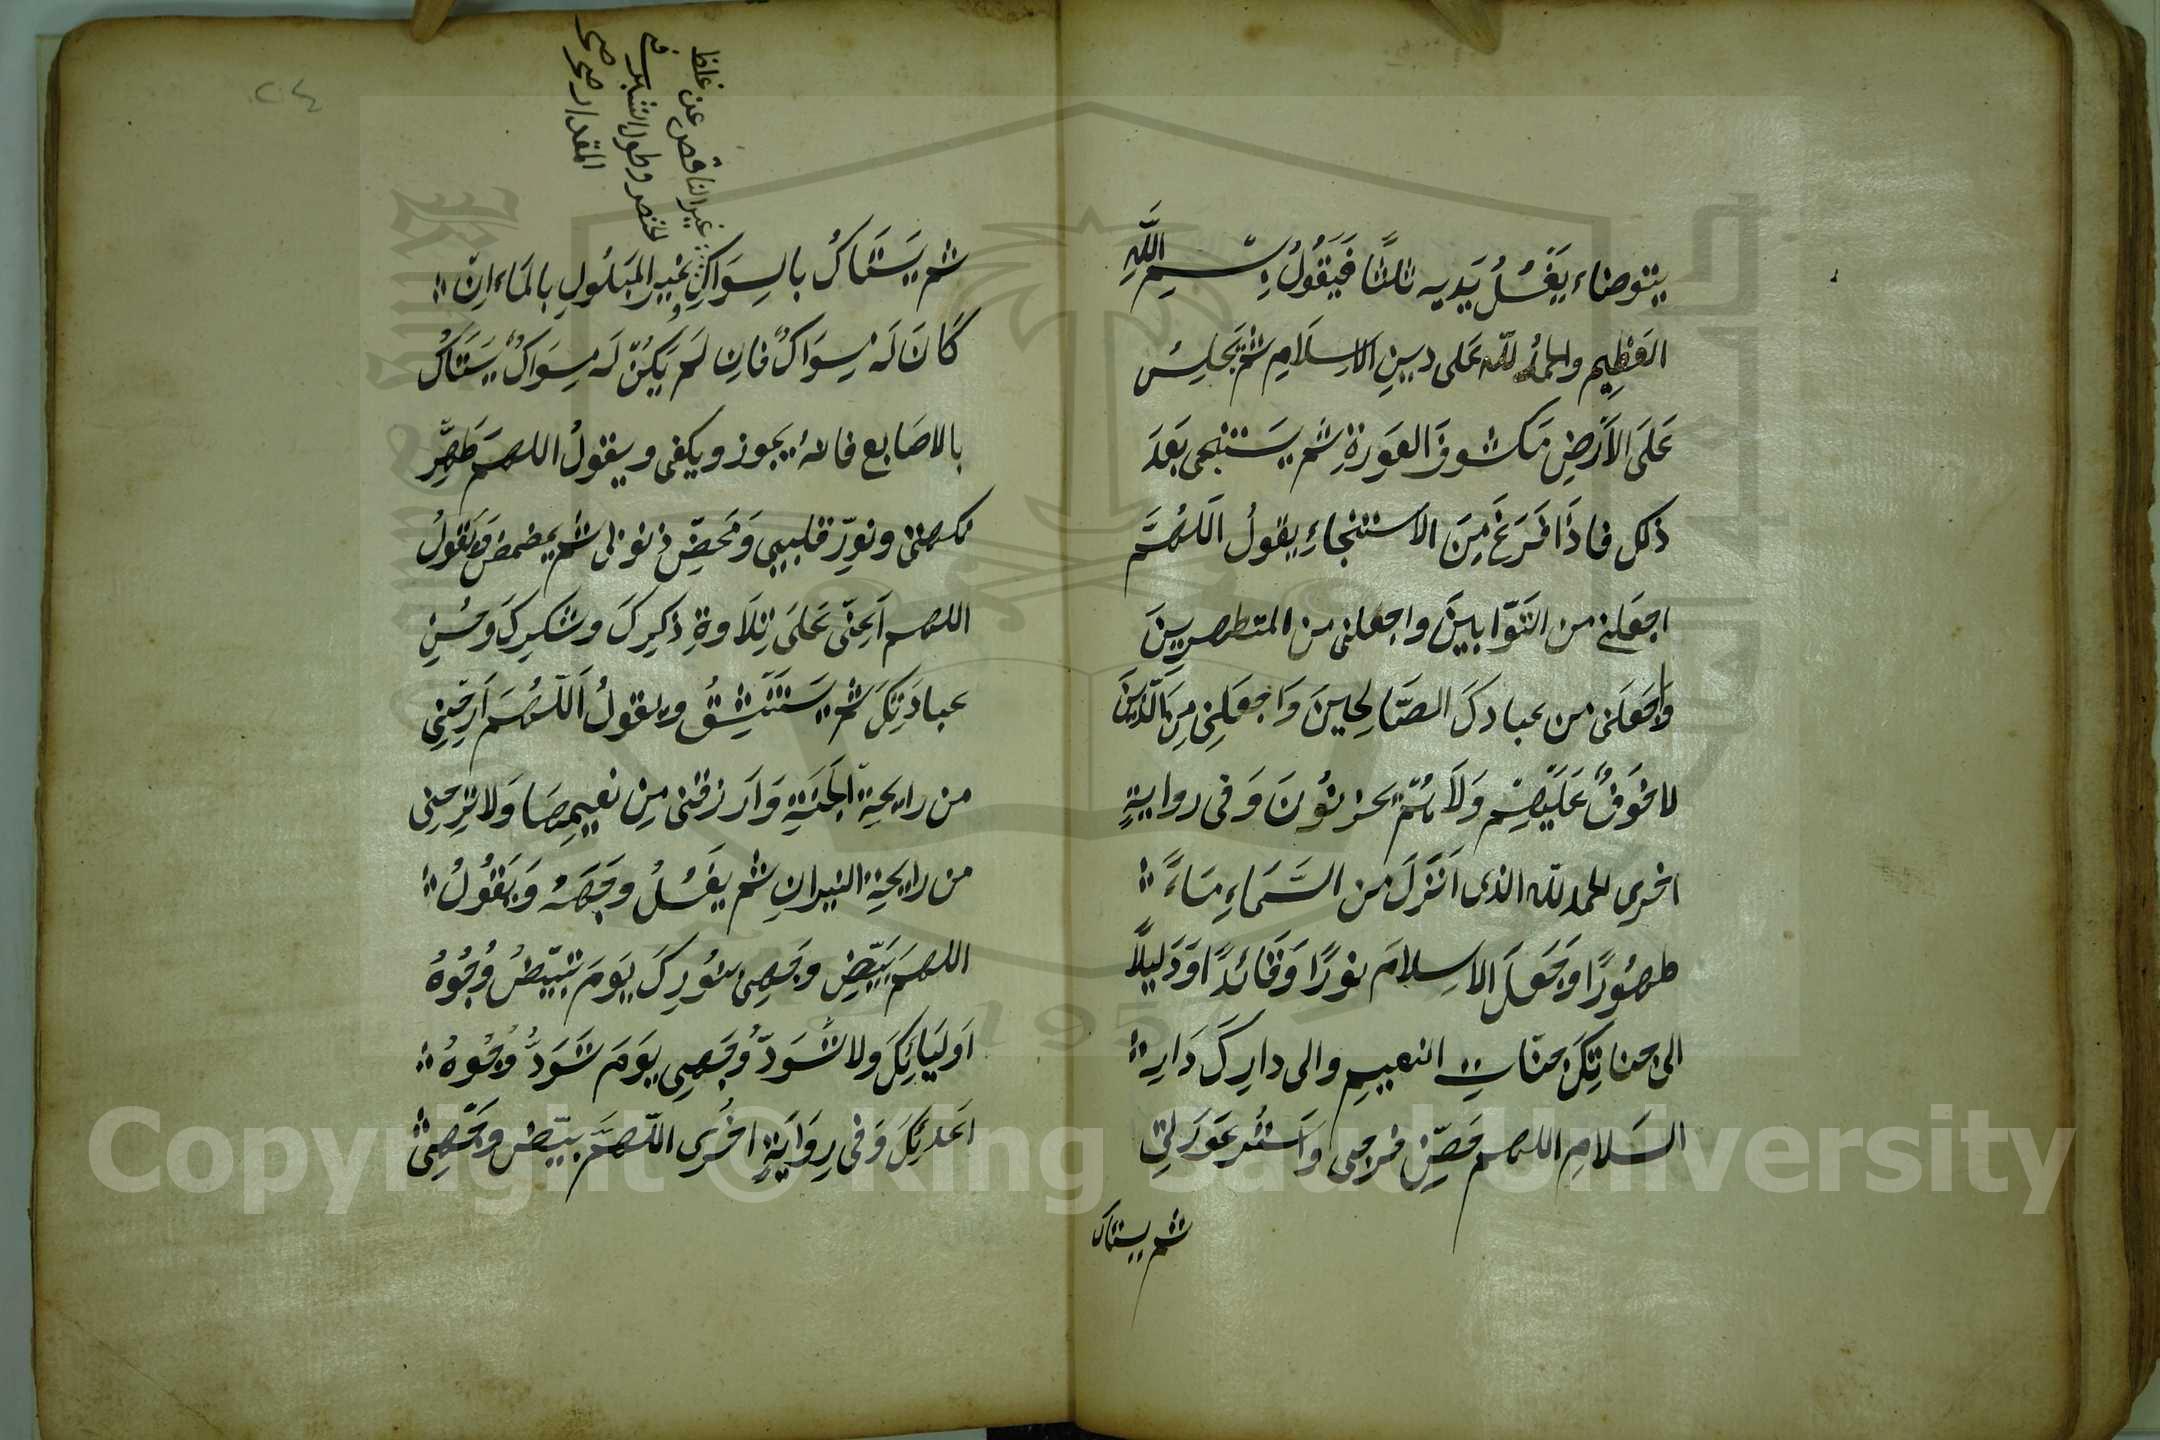 يتوضاء يَغْسُلُ يَديه ثلثًا فَيَقُولُ بِسْمِ اللَّهِ
العَظِيمِ والحمدُ للّه عَلى دينِ الاسِلَامِ ثم يَجْلِسُ
عَلَى الاَرْضِ مَكشوفَ العَورَةِ ثم يَستنجى بَعدَ
ذلك فاذَا فَرَغَ مِنَ الاستنجاءِ يقولُ اَللّهُمَّ
اجعَلنى من التَّوّابينَ واجعلنى من المتطهرينَ
وَاجعَلنى من عبادكَ الصَّالِحينَ وَاجعَلنِى مِنَ الَّذينَ
لا خَوفٌ عَلَيْهِمْ وَلَا هُمْ يحزنُونَ وَفى روايةٍ
اخرى الحمد للّه الذى اَنْزَلَ من السَّمَاءِ مَاءً
طهُورًا وَجَعَلَ الاسِلامَ نورًا وَقَائدًا وَدَليلًا
الى جناتِكَ جنّاتِ النعيمِ والى دارِكَ دَارِ
السَلامِ اللهم حَصِّن فرجى وَاستُر عَورَتِى
ثم يستاك
غير الناقص عن غلظ
الخنصر وطول الشبر فى
المقدار صح صح
ثم يَستَاكُ بالسِوَاكِ غيرِ المَبلُولِ بالمَاءِ اِن
كَانَ لَه سِوَاكٌ فاِن لَم يَكُنْ لَه سِوَاكٌ يَستَاكُ
بالاصَابع فانهُ يجوز ويكفى ويقولُ اللهم طَهِّر
نكهتى ونوِّر قلبيى وَمَحِّص ذنوبى ثم يمضمض وَيَقُولُ
اللهم اَعِنّى عَلَى تِلَاوةِ ذكرِكَ وشكرِكَ وَحُسنِ
عبادَتِكَ ثم يَستَنشِقُ ويقولُ اَللّهُمَ اَرِحْنِى
من رايحَةِ الجَنةِ وَارزقنى مِن نعيمِهَا وَلا تُرِحنِى
من رايحَةِ النيرانِ ثم يَغسُلُ وجهَهُ وَيَقُولُ
اللهمَ بَيّض وجهِى بنُورِكَ يَومَ تَبيَضُّ وُجُوهُ
اَوليَائِكَ ولا تُسَوِّدْ وَجهِى يَومَ تَسْوَدُّ وُجُوهُ
اَعدَائِكَ وَفى رِوَايَةٍ اخرى اللّهمَّ بيّض وَجهِى